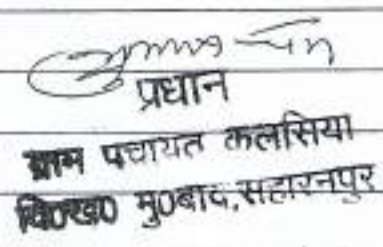 प्रधान
ग्राम पंचायत कलसिया
वि०ख० मु०बाद,सहारनपुर